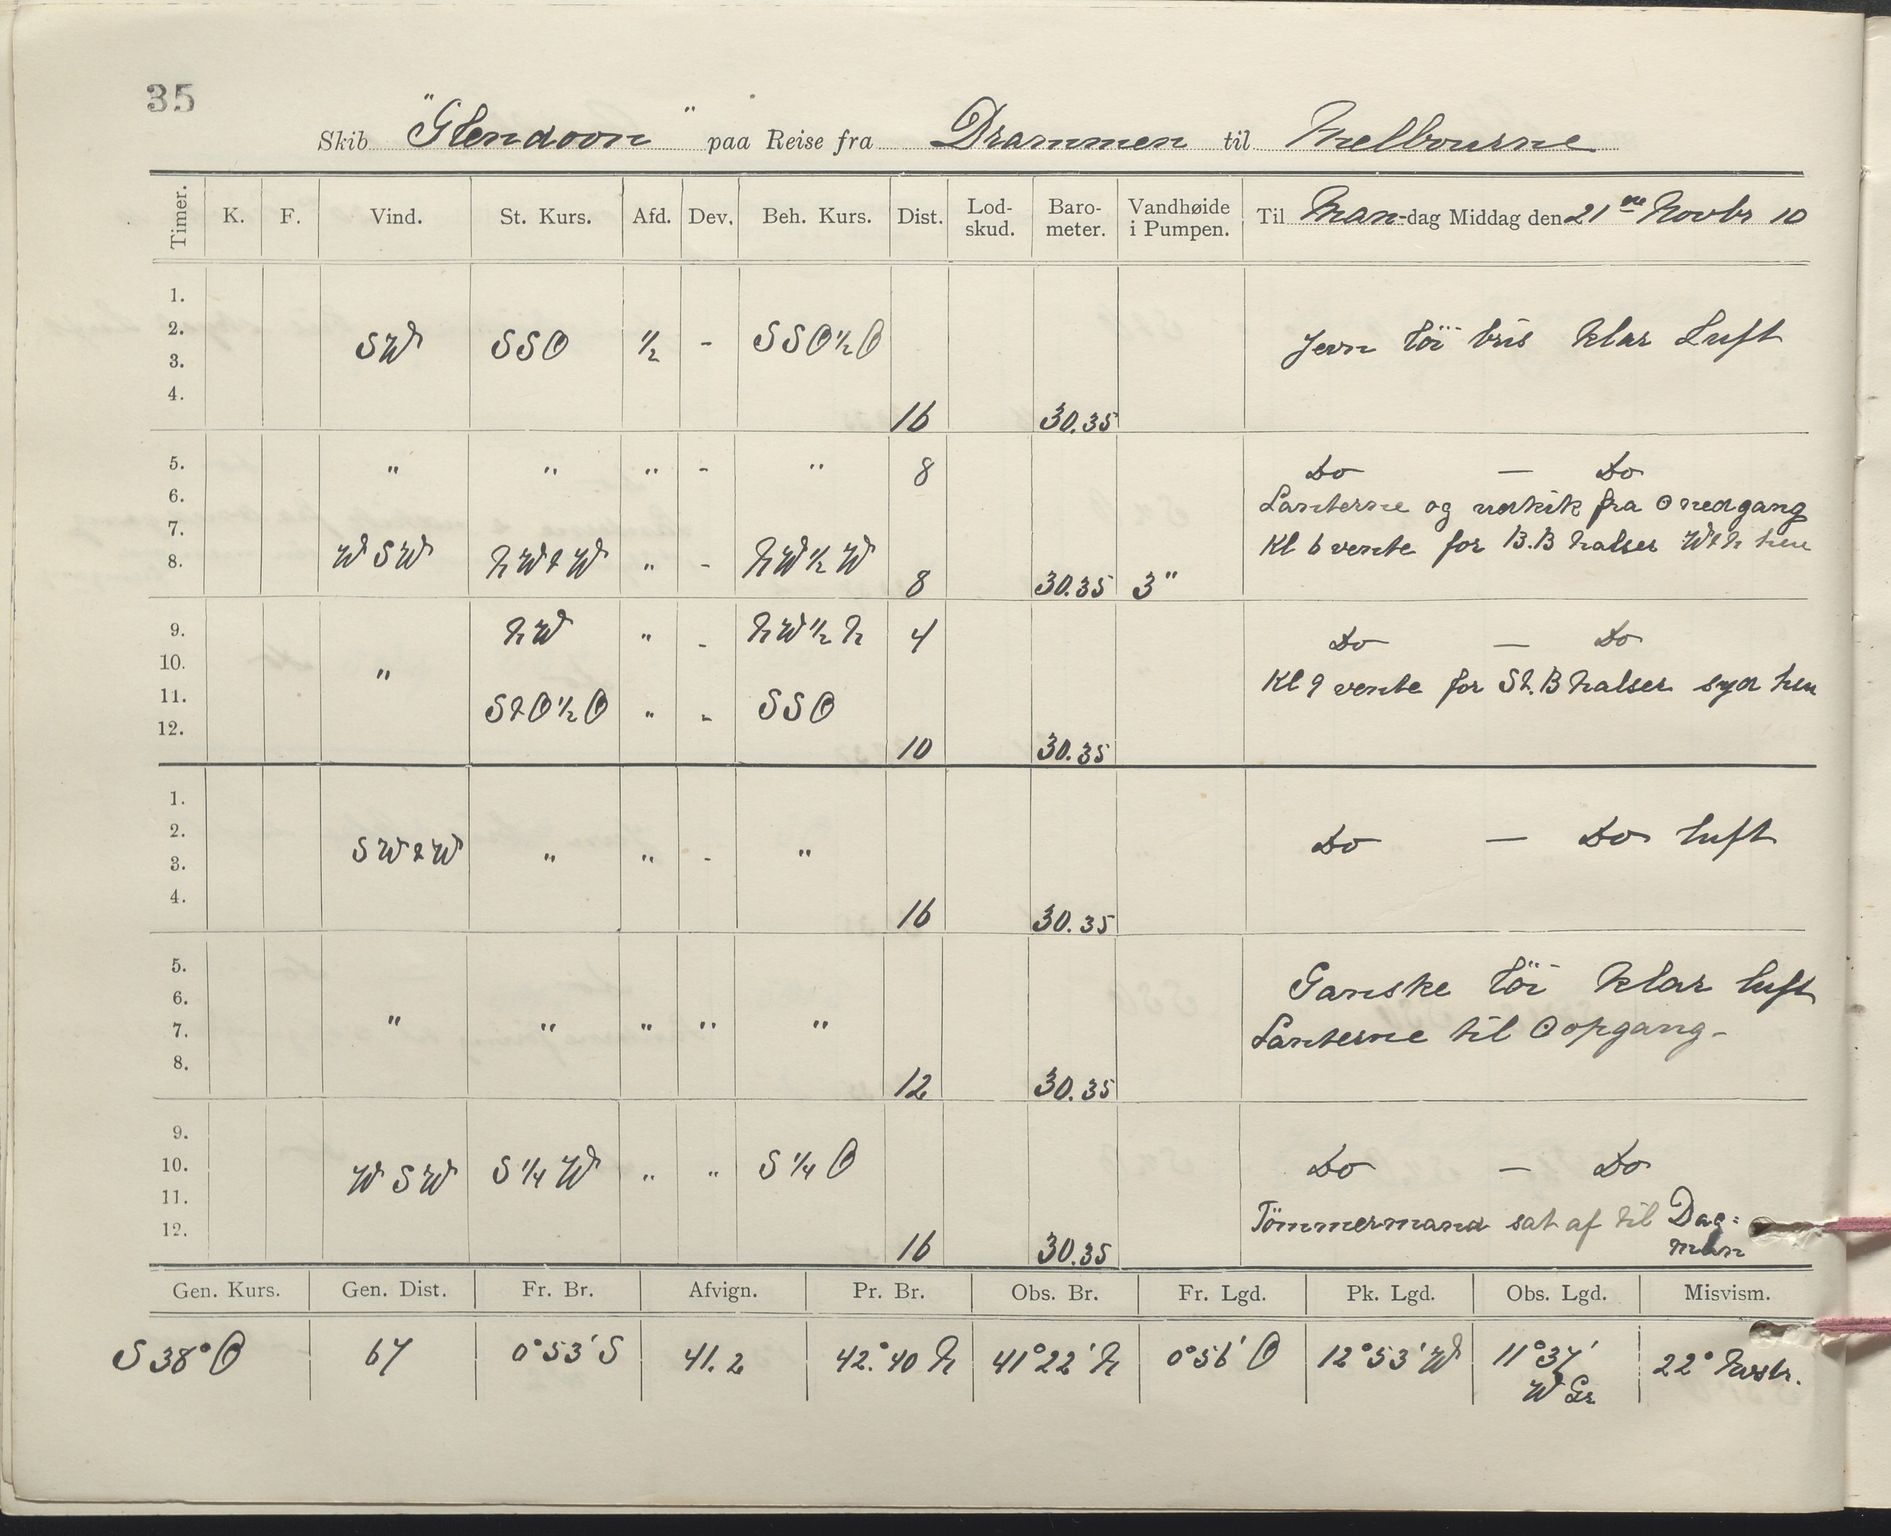 35
Skib "Glendoon" paa Reise fra Drammen til Melbourne
Timer. K. F. Vind. St. Kurs. Afd. Dev. Beh. Kurs. Dist. Lod-skud. Baro-meter. Vandhøide i Pumpen. Til Man-dag Middag den 21ne Novbr 10
1.
2. SW SSO 1/2 - SSO 1/2 O Jevn løi bris klar Luft
3.
4. 16 30.35
5. " " " - " 8 Do — Do
6. Lanterne og udkik fra O nedgang
7. Kl 6 vendte for B.B halser W & N hen
8. WSW NW & W " - NW 1/2 W 8 30.35 3"
9. NW " - NW 1/2 N 4 Do — Do
10. "
11. S & O 1/2 O " - SSO Kl 9 vendte for St.B halser syd hen
12. 10 30.35
1.
2. SW & W " " - " Do — Do luft
3.
4. 16 30.35
5.
6. Ganske løi klar luft
7. " " " " " Lanterne til O opgang -
8. 12 30.35
9.
10. WSW S 1/4 W " " S 1/4 O Do — Do
11. Tömmermand sat af til Dag=
12. man
16 30.35
Gen. Kurs. Gen. Dist. Fr. Br. Afvign. Pr. Br. Obs. Br. Fr. Lgd. Pk. Lgd. Obs. Lgd. Misvism.
S 38° O 67 0° 53' S 41.2 42.° 40 N 41° 22' N 0° 56' O 12° 53' W 11° 37' W Gr 22° Nvstr.